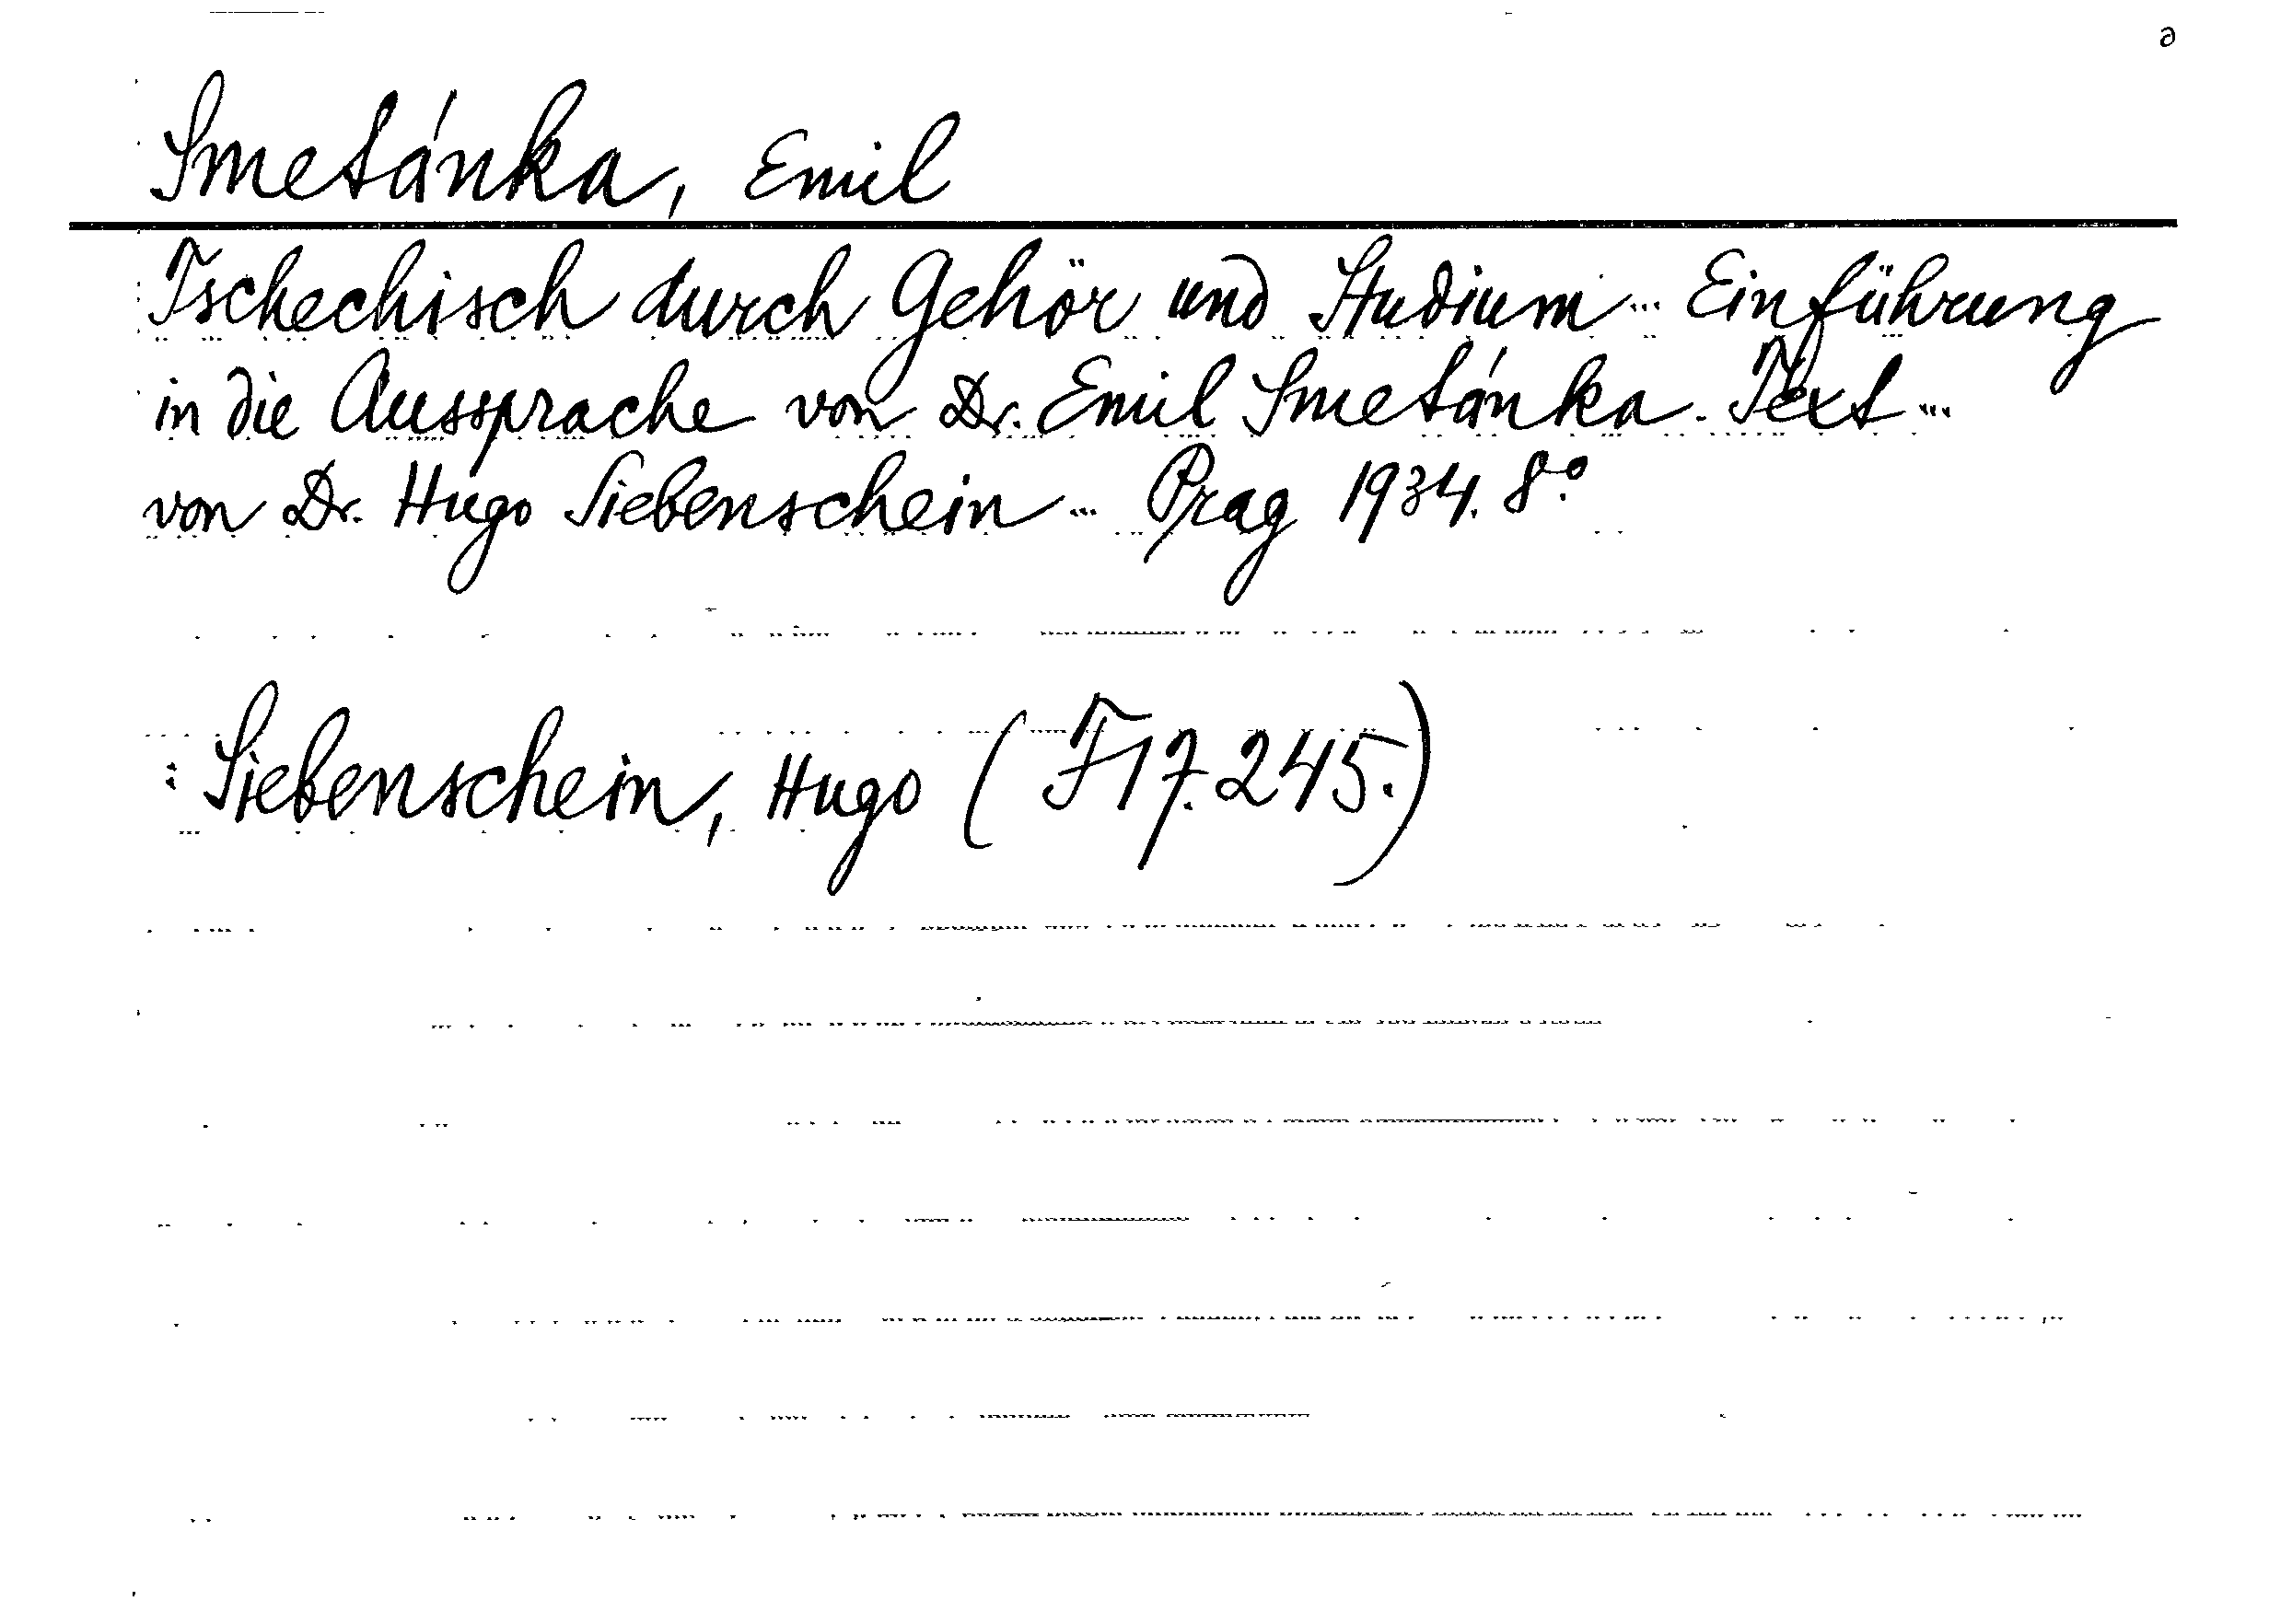 Smetánka, Emil
Tschechisch durch Gehör und Studium ... Einführung
in die Aussprache von Dr. Emil Smetánka. Text ...
von Dr. Hugo Siebenschein ... Prag 1934. 8°.
: Siebenschein, Hugo (F 17.245.)